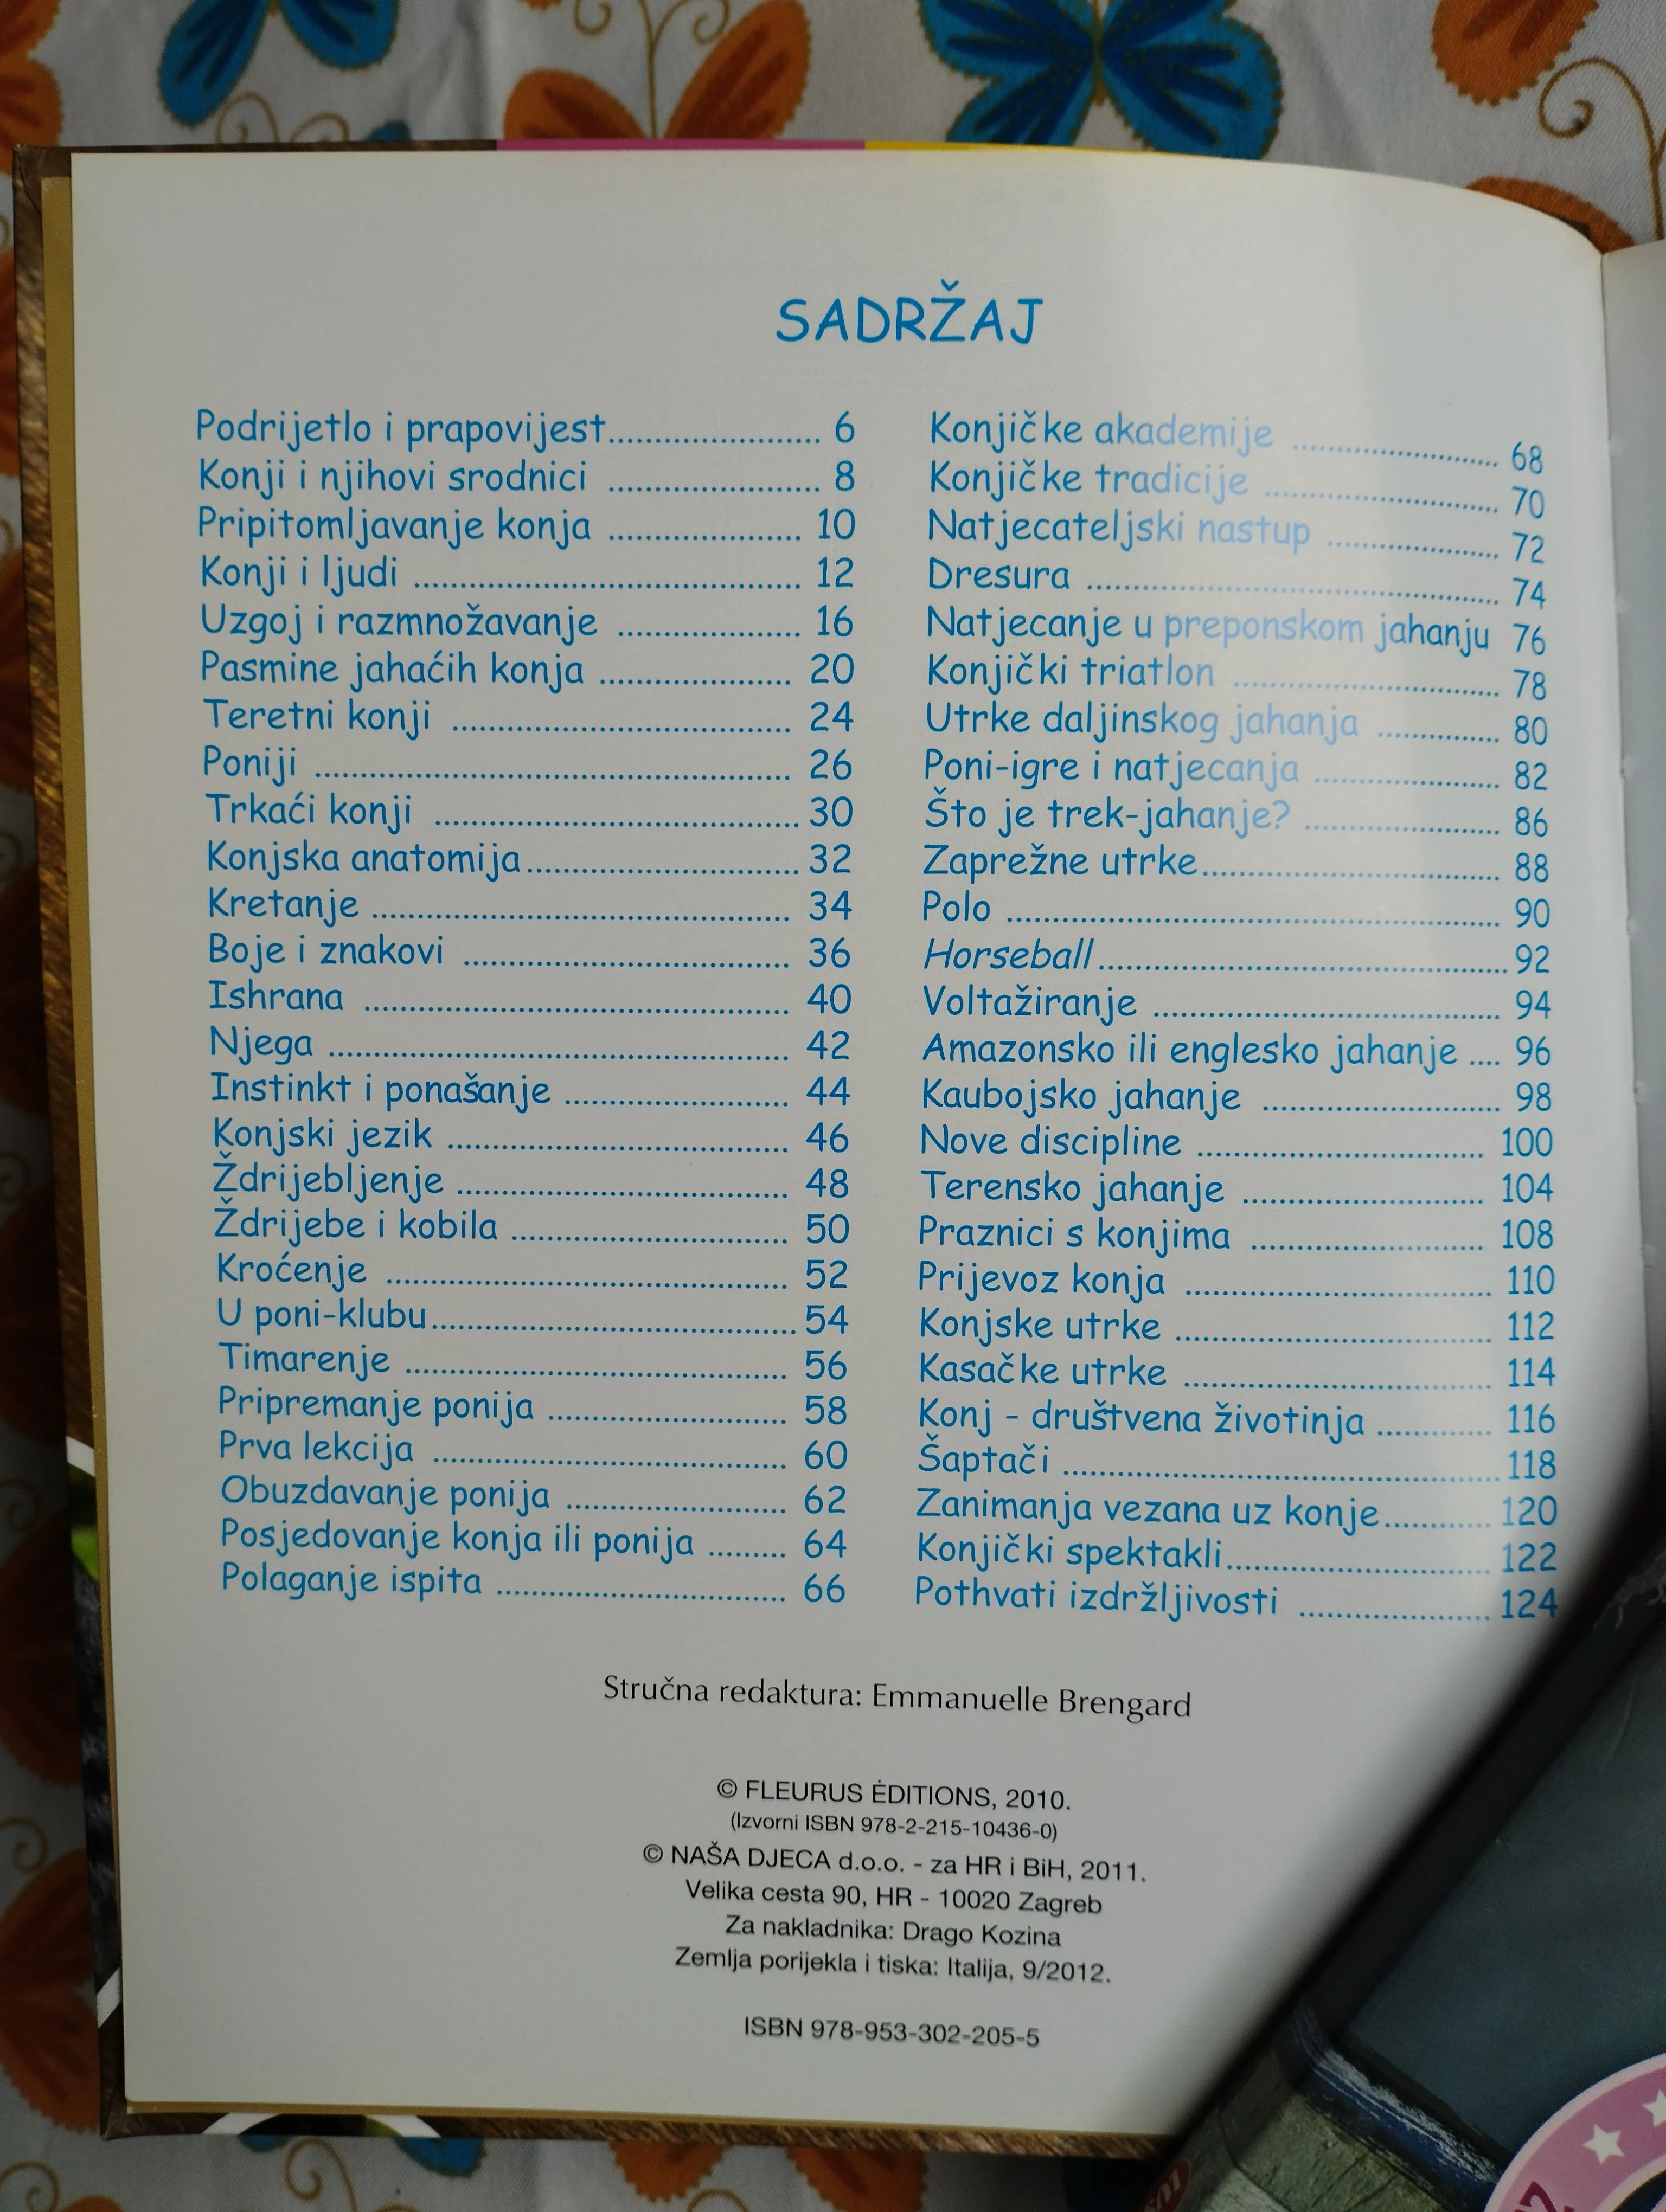 SADRŽAJ
Podrijetlo i prapovijest...................... 6
Konji i njihovi srodnici ...................... 8
Pripitomljavanje konja .................... 10
Konji i ljudi ........................................ 12
Uzgoj i razmnožavanje ................... 16
Pasmine jahaćih konja .................... 20
Teretni konji ................................... 24
Poniji ................................................. 26
Trkaći konji ......................................30
Konjska anatomija............................32
Kretanje ........................................... 34
Boje i znakovi .................................. 36
Ishrana ............................................ 40
Njega ................................................ 42
Instinkt i ponašanje ....................... 44
Konjski jezik ................................... 46
Ždrijebljenje .................................. 48
Ždrijebe i kobila ............................. 50
Kroćenje .......................................... 52
U poni-klubu......................................54
Timarenje ........................................ 56
Pripremanje ponija ......................... 58
Prva lekcija ..................................... 60
Obuzdavanje ponija ....................... 62
Posjedovanje konja ili ponija ......... 64
Polaganje ispita .............................. 66
Konjičke akademije ........................ 68
Konjičke tradicije ........................... 70
Natjecateljski nastup ..................... 72
Dresura ............................................ 74
Natjecanje u preponskom jahanju 76
Konjički triatlon .............................. 78
Utrke daljinskog jahanja ............... 80
Poni-igre i natjecanja ..................... 82
Što je trek-jahanje? ...................... 86
Zaprežne utrke................................ 88
Polo ................................................... 90
Horseball...........................................92
Voltažiranje ..................................... 94
Amazonsko ili englesko jahanje .... 96
Kaubojsko jahanje .......................... 98
Nove discipline ............................... 100
Terensko jahanje .......................... 104
Praznici s konjima ......................... 108
Prijevoz konja ................................ 110
Konjske utrke ................................. 112
Kasačke utrke ................................ 114
Konj - društvena životinja ............. 116
Šaptači .............................................118
Zanimanja vezana uz konje............ 120
Konjički spektakli............................ 122
Pothvati izdržljivosti .................... 124
Stručna redaktura: Emmanuelle Brengard
© FLEURUS ĖDITIONS, 2010.
(Izvorni ISBN 978-2-215-10436-0)
© NAŠA DJECA d.o.o. - za HR i BiH, 2011.
Velika cesta 90, HR - 10020 Zagreb
Za nakladnika: Drago Kozina
Zemlja porijekla i tiska: Italija, 9/2012.
ISBN 978-953-302-205-5